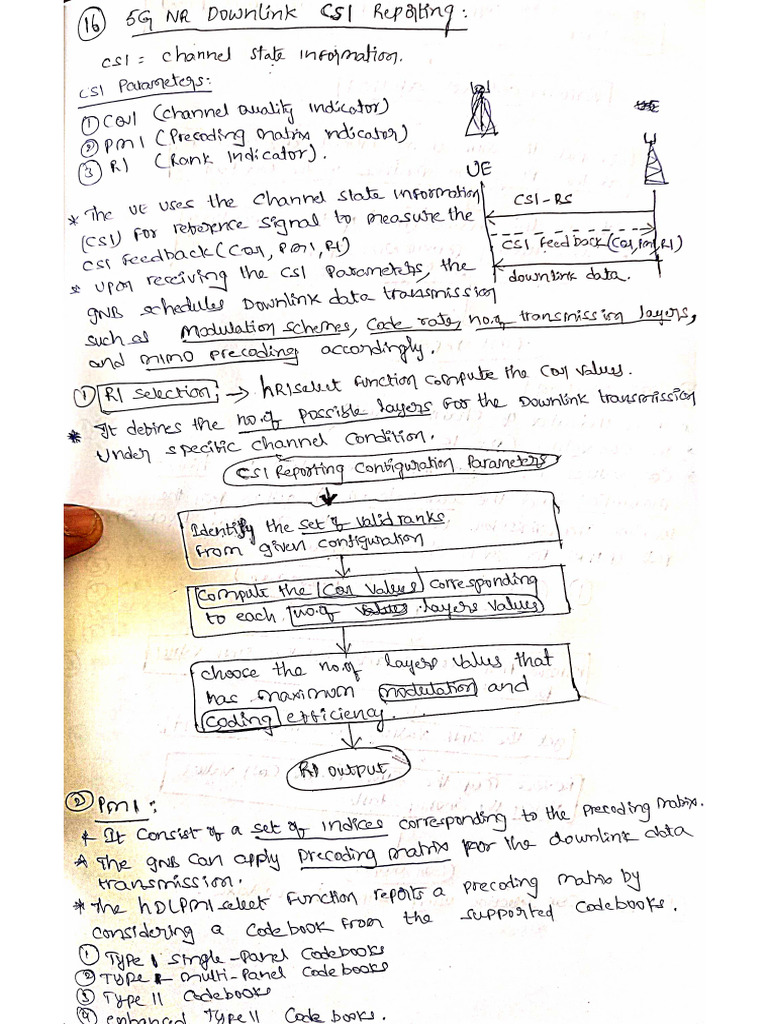 16 5G NR Downlink CSI Reporting:
CSI = Channel State Information.
CSI Parameters:
① CQI (Channel Quality Indicator)
② PMI (Precoding Matrix Indicator)
③ RI (Rank Indicator).
UE
CSI-RS
CSI feedback (CQI, PMI, RI)
downlink data.
* The UE uses the Channel State Information
(CSI) for reference signal to measure the
CSI feedback (CQI, PMI, RI)
* Upon receiving the CSI Parameters, the
gNB schedules Downlink data transmission
such as Modulation schemes, Code rate, no.of transmission layers,
and MIMO Precoding accordingly.
① RI Selection: → hRISelect function compute the CQI Values.
* It defines the no.of Possible layers for the Downlink transmission
under specific channel condition.
CSI Reporting Configuration Parameters
Identify the set of valid ranks
from given configuration
Compute the CQI Values corresponding
to each no.of layers values
choose the no.of layers value that
has maximum modulation and
coding efficiency.
RI output
② PMI:
* It Consist of a set of indices corresponding to the Precoding Matrix.
* The gNB can apply Precoding matrix for the downlink data
transmission.
* The hDLPMISelect Function reports a precoding matrix by
considering a Codebook from the supported Codebooks.
① Type 1 Single-Panel Codebooks
② Type 1 - multi-Panel Codebooks
③ Type II Codebooks
④ enhanced Type II Code books.